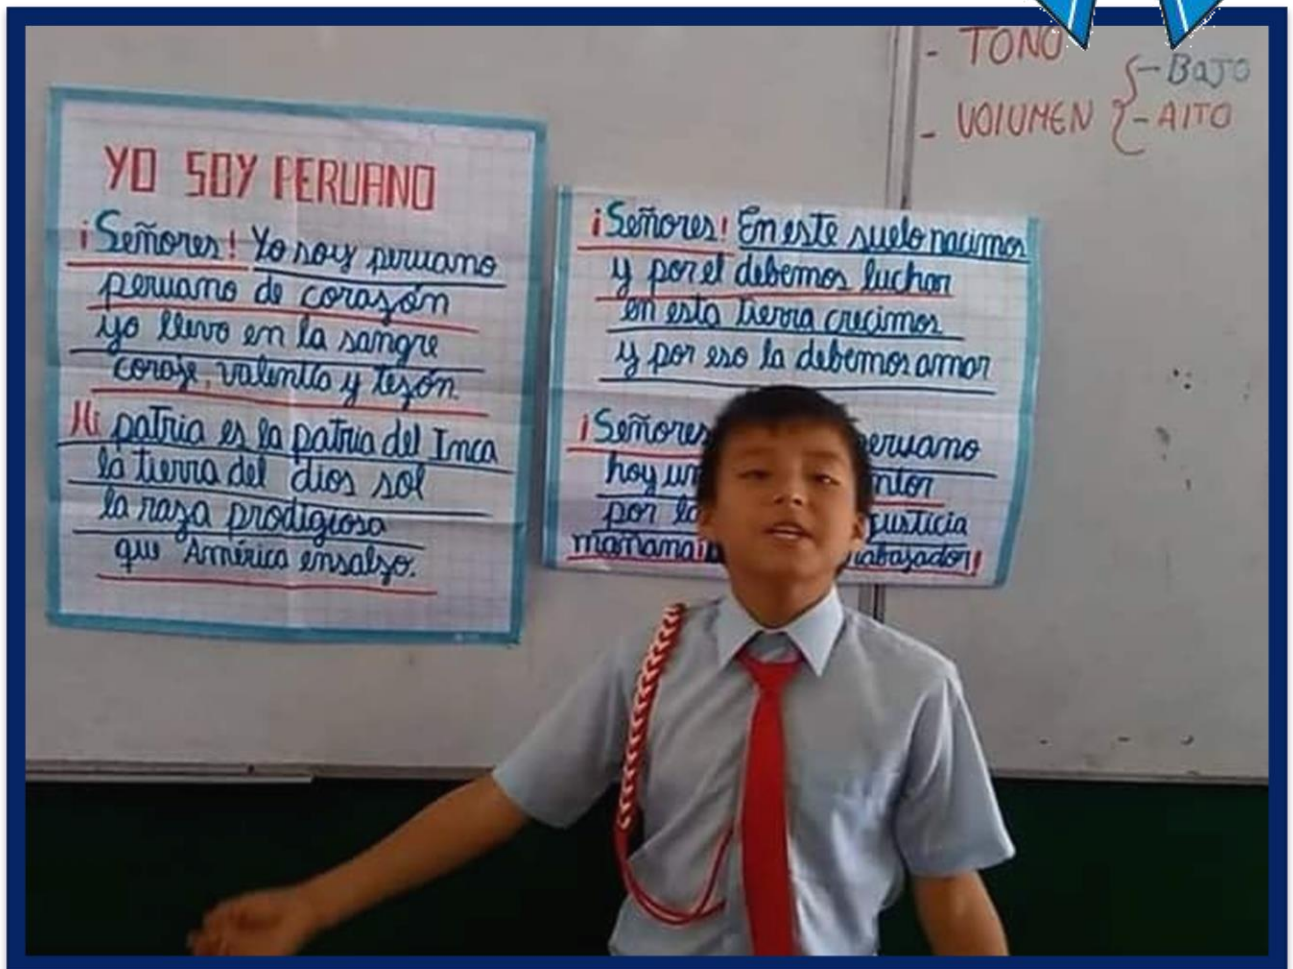 - TONO
- VOlUMEN { - BaJO
- AlTO
YO SOY PERUANO
¡Señores! Yo soy peruano
peruano de corazón
yo llevo en la sangre
coraje, valentía y tezón.
Mi patria es la patria del Inca
la tierra del dios sol
la raza prodigiosa
que América ensalzo.
¡Señores! En este suelo nacimos
y por el debemos luchar
en esta tierra crecimos
y por eso la debemos amar
¡Señores peruano
hoy un
por la justicia
mañana